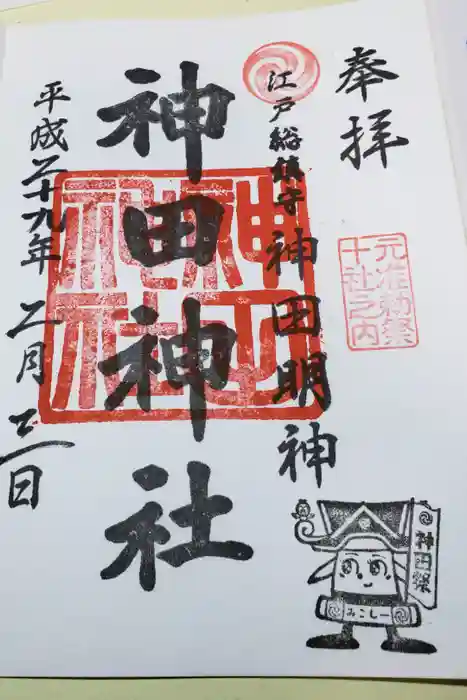 奉拝
元准勅祭
十社之内
江戸総鎮守 神田明神
神田神社
神田神社
平成二十九年 二月 二日
神田祭
みこしー